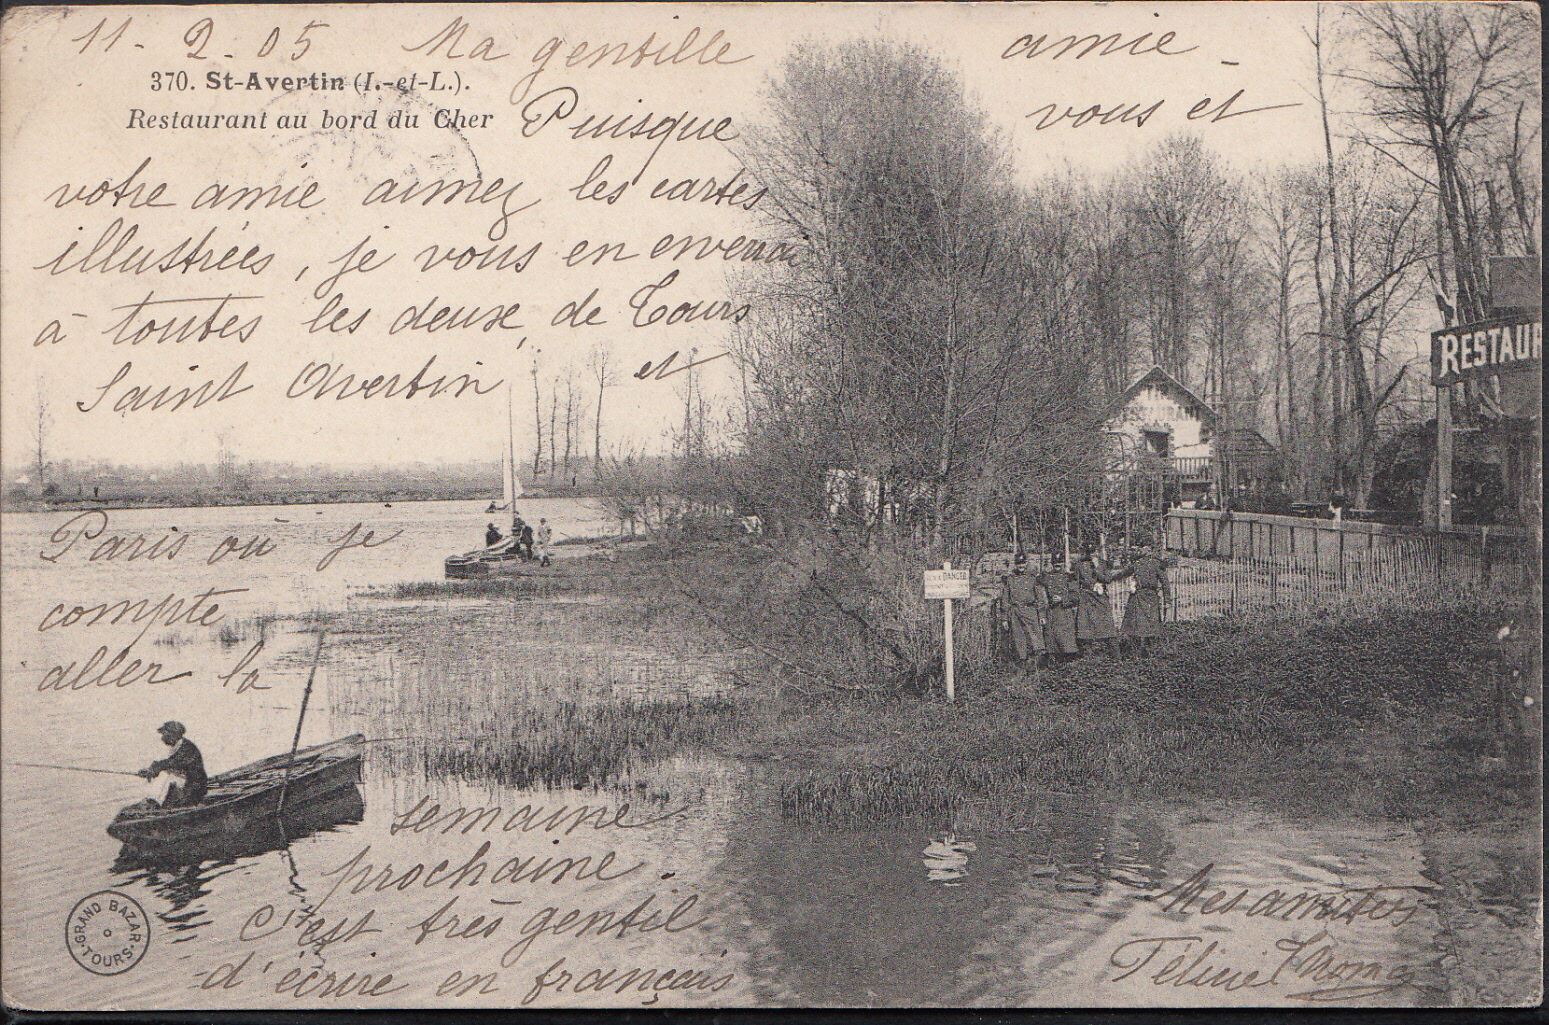 11-2-05 Ma gentille amie -
370. St-Avertin (I.-et-L.).
Restaurant au bord du Cher
Puisque vous et
votre amie aimez les cartes
illustrées, je vous en enverrai
à toutes les deux, de Tours
Saint Avertin et
Paris où je
compte
aller la
semaine
prochaine.
C'est très gentil
d'écrire en français
Mes amitiés
Félicie Thomas
RESTAUR
DANGER
GRAND BAZAR
TOURS